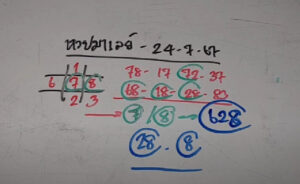 หวยมาเลย์ - 24-7-67
1
6 7 8
2 3
78 - 17 - 72 - 37
68 - 18 - 28 - 83
7 / 8 → 628
28 - 8